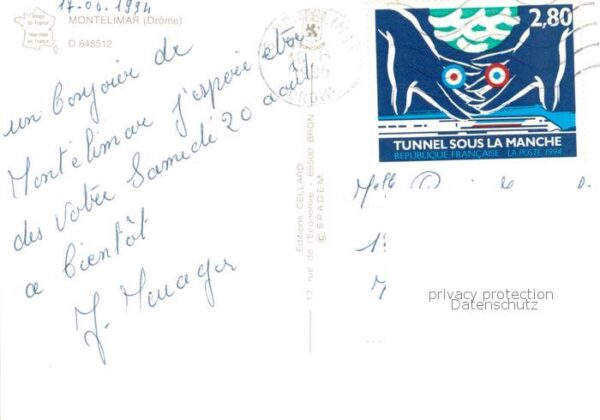 17.06.1994
MONTELIMAR (Drôme)
D 648512
un bonjour de
Montélimar j'espère être
des votre Samedi 20 août
a bientôt
Editions CELLARD
13, rue de l'Economie - 69500 BRON
© S.P.A.D.E.M.
2,80
TUNNEL SOUS LA MANCHE
REPUBLIQUE FRANÇAISE LA POSTE 1994
Melle
privacy protection
Datenschutz